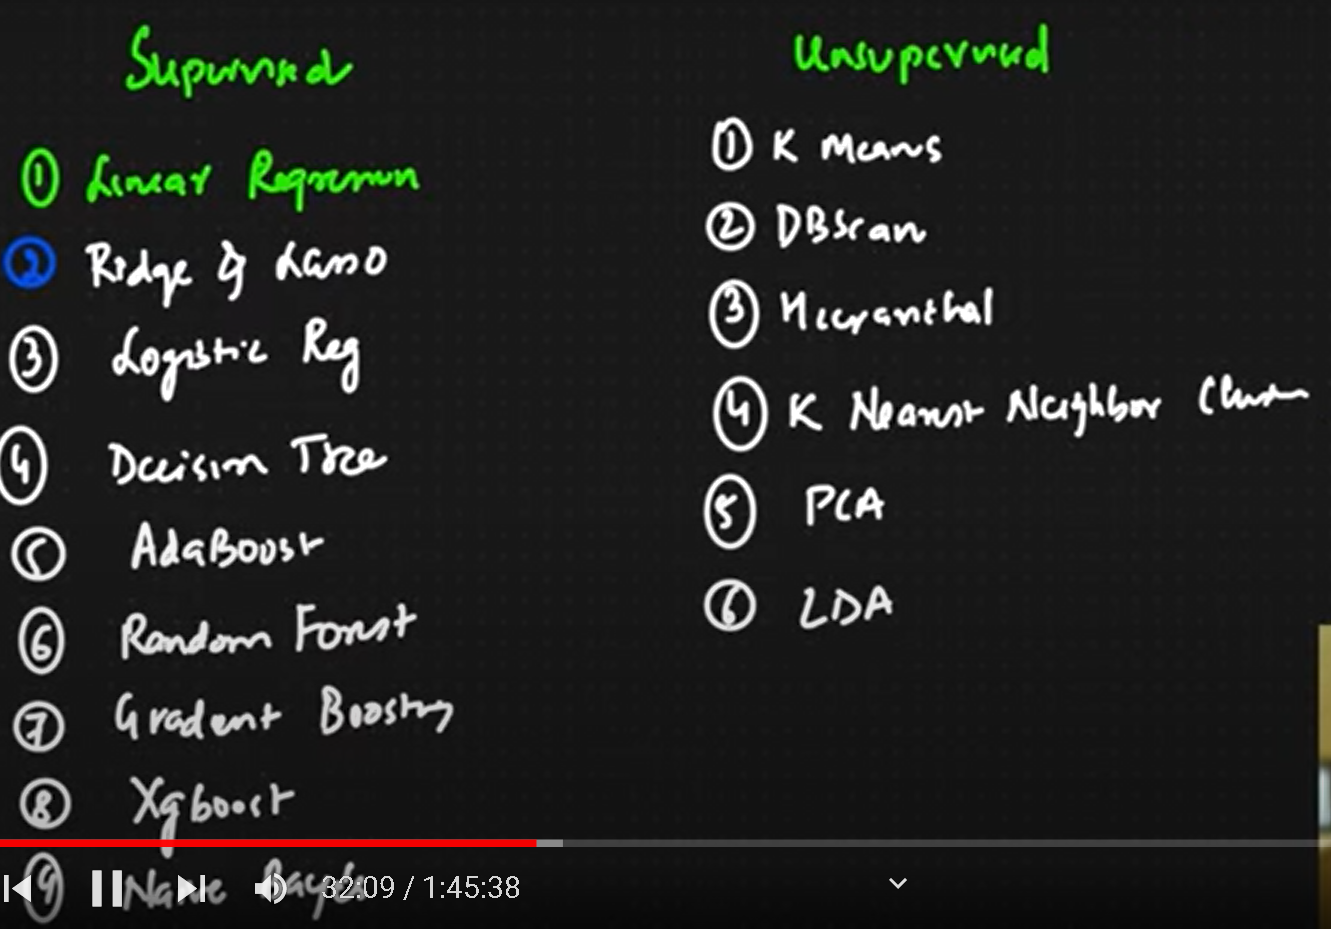 Supervised
① Linear Regression
② Ridge & Lasso
③ Logistic Reg
④ Decision Tree
⑤ AdaBoost
⑥ Random Forest
⑦ Gradient Boosting
⑧ Xgboost
⑨ Naive Bayes
Unsupervised
① K Means
② DBScan
③ Hierarchal
④ K Nearest Neighbor Cluster
⑤ PCA
⑥ LDA
32:09 / 1:45:38